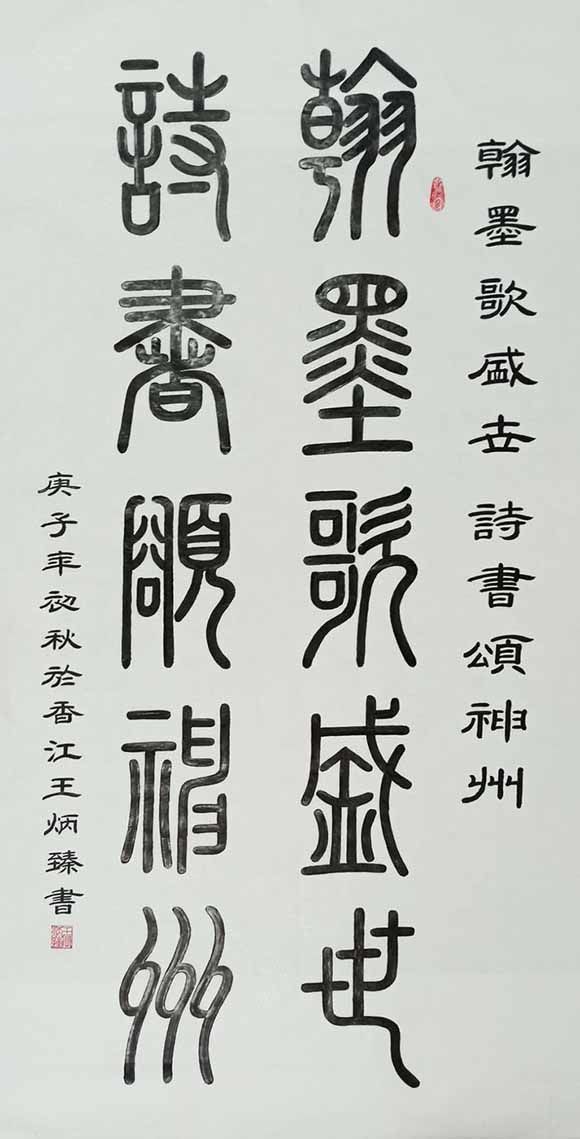 翰墨歌盛世 詩書頌神州
翰墨歌盛世
詩書頌神州
庚子年初秋於香江王炳臻書